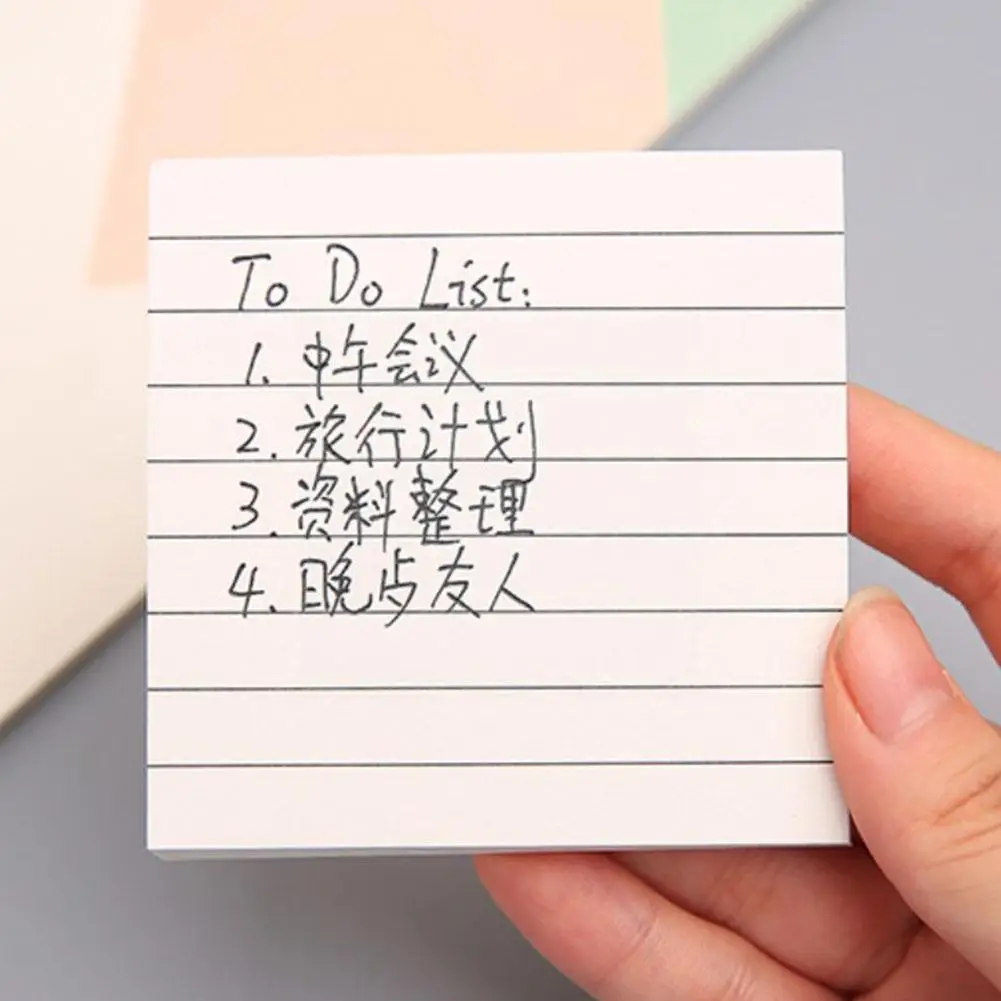 To Do List:
1. 中午会议
2. 旅行计划
3. 资料整理
4. 晚与友人